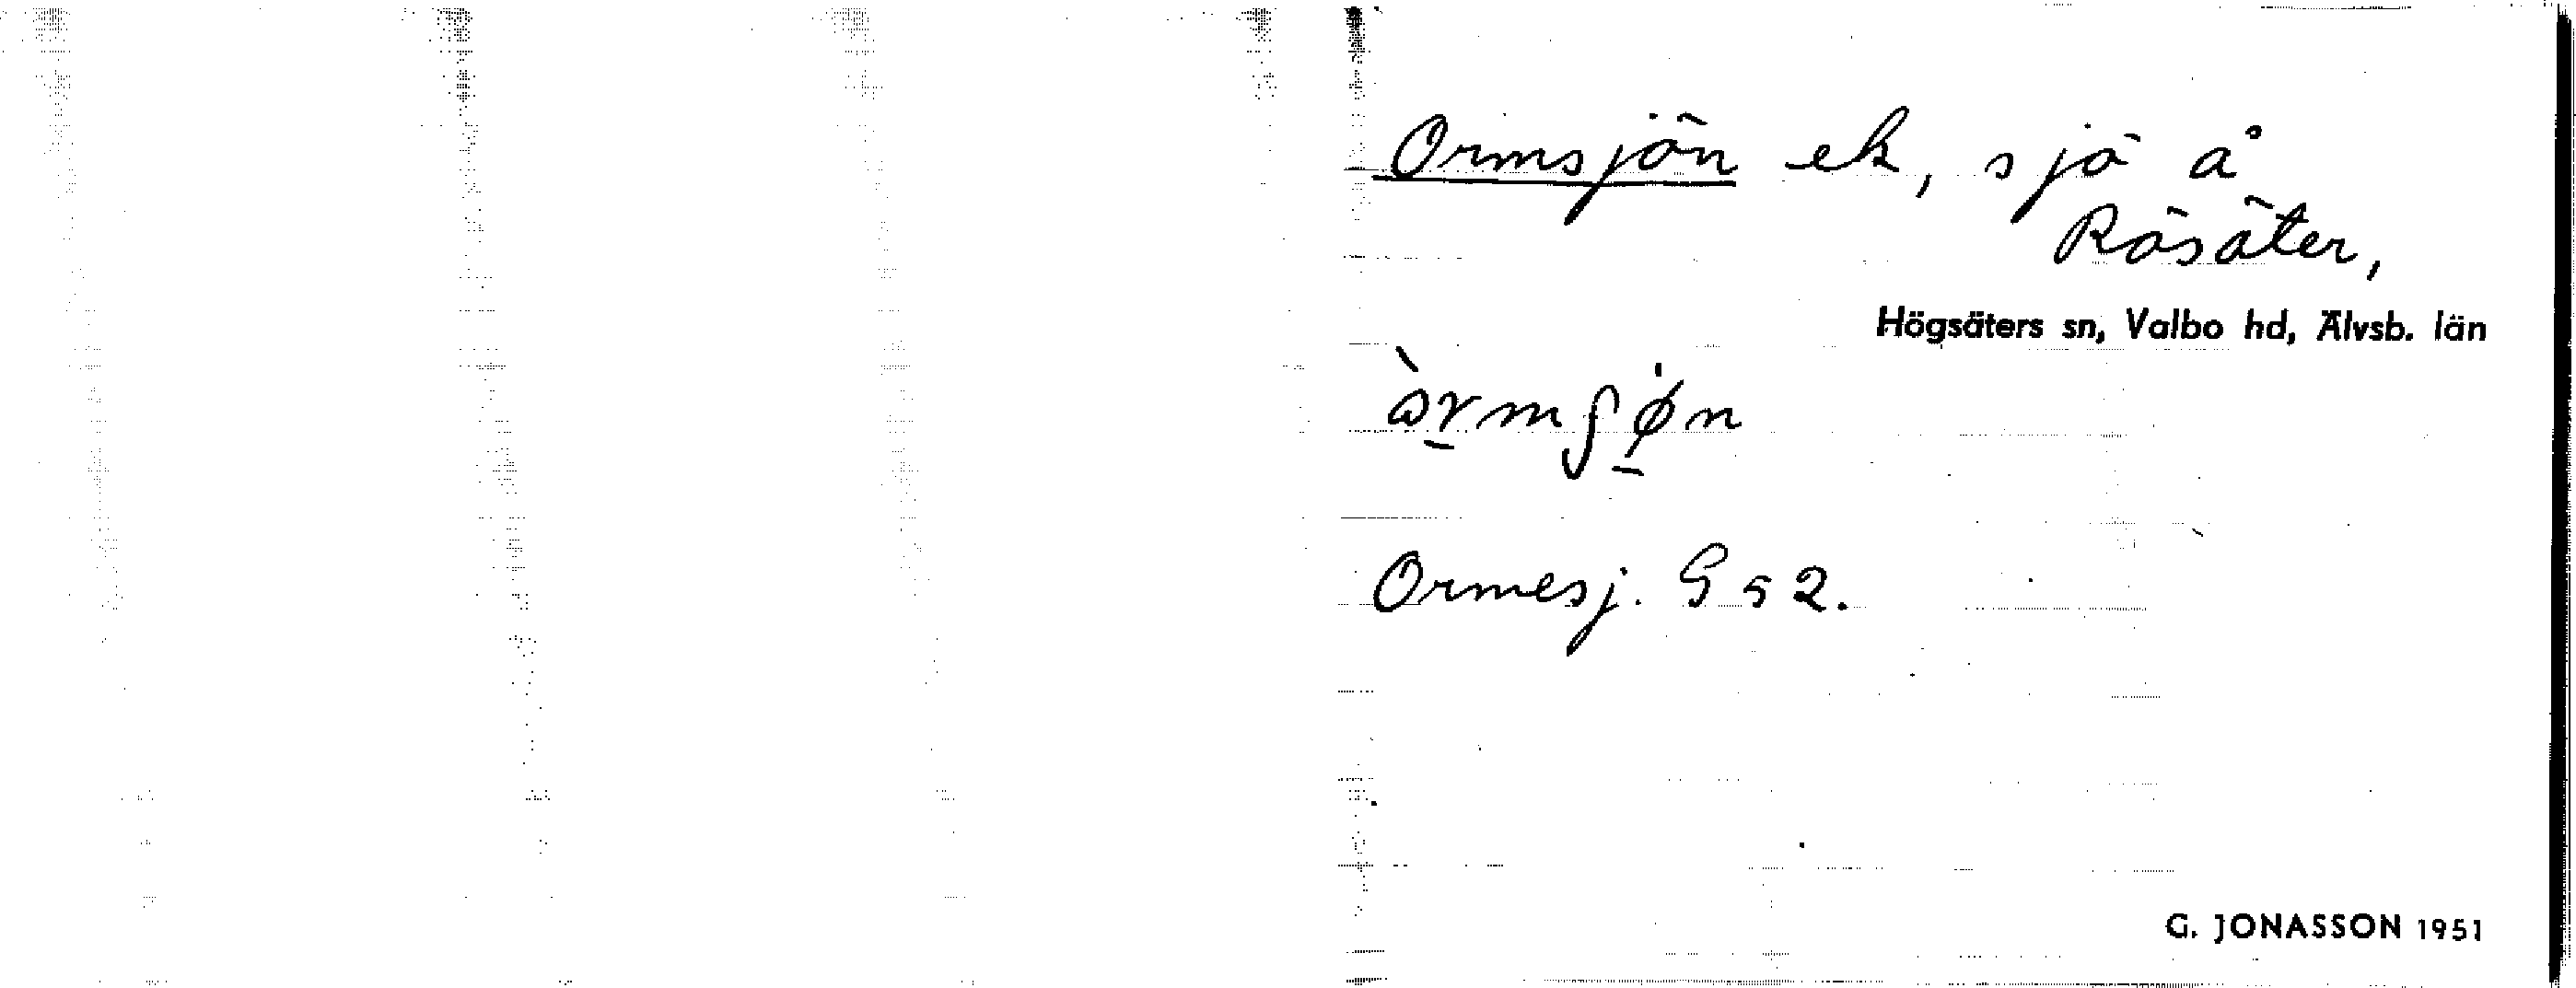 Ormsjön ek, sjö å
Rösäter,
Högsäters sn, Valbo hd, Älvsb. län
Ormesj. G s 2.
G. JONASSON 1951